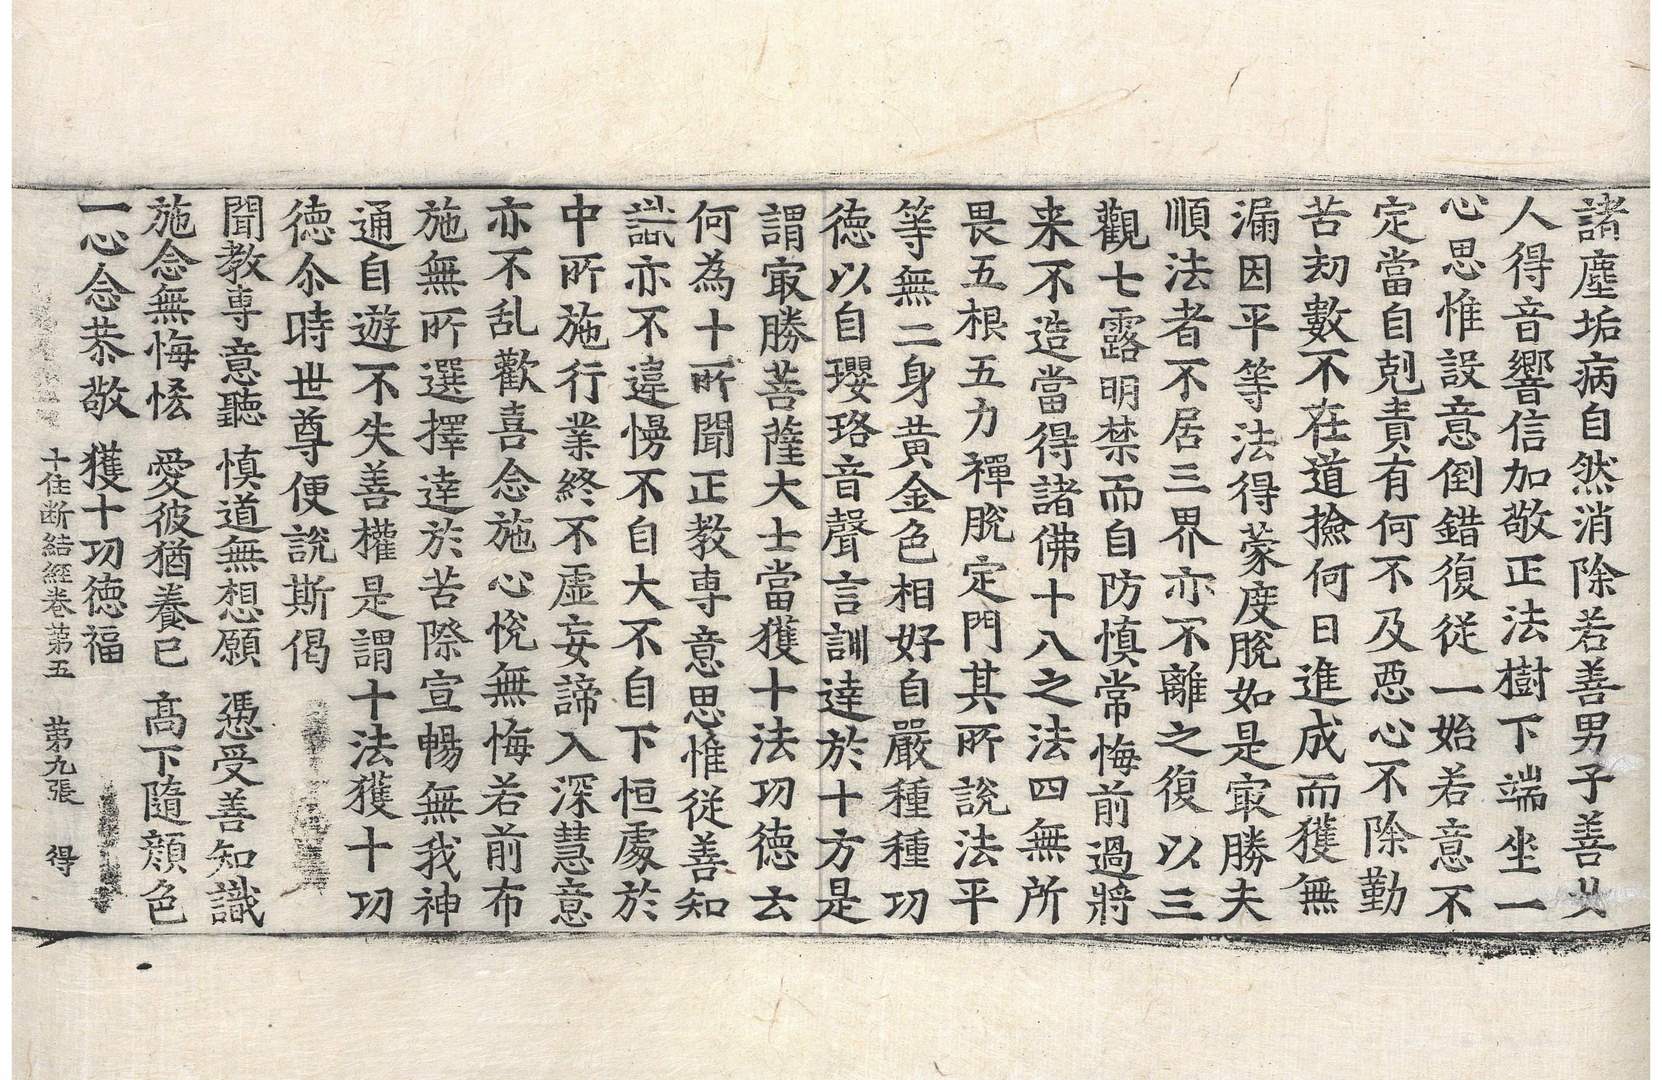 諸塵垢病自然消除若善男子善女
人得音響信加敬正法樹下端坐一
心思惟設意倒錯復從一始若意不
定當自剋責有何不及惡心不除勤
苦劫數不在道撿何日進成而獲無
漏因平等法得蒙度脫如是㝡勝夫
順法者不居三界亦不離之復以三
觀七露明禁而自防慎常悔前過將
来不造當得諸佛十八之法四無所
畏五根五力禪脫定門其所說法平
等無二身黃金色相好自嚴種種功
德以自瓔珞音聲言訓達於十方是
謂㝡勝菩薩大士當獲十法功德云
何為十所聞正教專意思惟從善知
識亦不違慢不自大不自下恒處於
中所施行業終不虛妄諦入深慧意
亦不乱歡喜念施心悅無悔若前布
施無所選擇達於苦際宣暢無我神
通自遊不失善權是謂十法獲十功
德尒時世尊便說斯偈
聞教專意聽 慎道無想願 憑受善知識
施念無悔恡 愛彼猶養己 高下隨顏色
一心念恭敬 獲十功德福
十住断結經卷第五 第九張 得